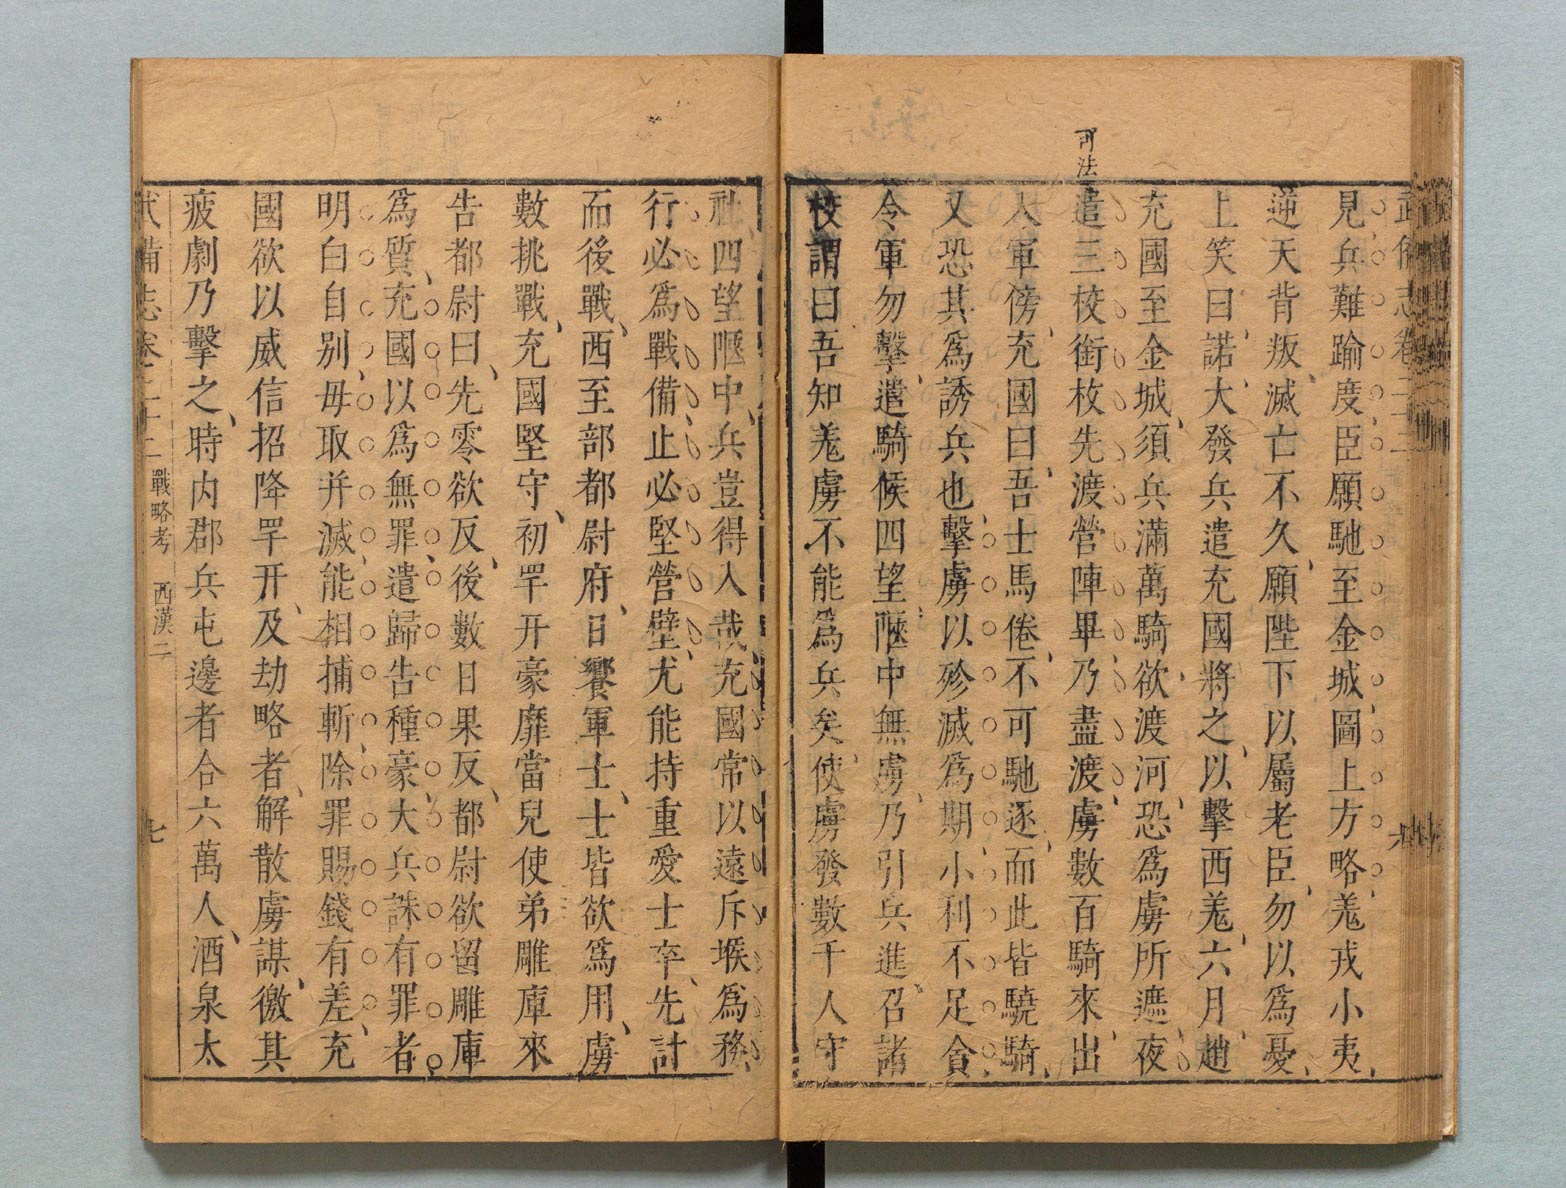 武備志卷二十二
六
見兵難踰度臣願馳至金城圖上方略羗戎小夷
逆天背叛滅亡不久願陛下以屬老臣勿以爲憂
上笑曰諾大發兵遣充國將之以擊西羗六月趙
充國至金城須兵滿萬騎欲渡河恐爲虜所遮夜
可法
遣三校銜枚先渡營陣畢乃盡渡虜數百騎來出
入軍傍充國曰吾士馬倦不可馳逐而此皆驍騎
又恐其爲誘兵也擊虜以殄滅爲期小利不足貪
令軍勿擊遣騎候四望陿中無虜乃引兵進召諸
校謂曰吾知羗虜不能爲兵矣使虜發數千人守
杜四望陿中兵豈得入哉充國常以遠斥堠爲務
行必爲戰備止必堅營壁尤能持重愛士卒先計
而後戰西至部都尉府日饗軍士士皆欲爲用虜
數挑戰充國堅守初䍐开豪靡當兒使弟雕庫來
告都尉曰先零欲反後數日果反都尉欲留雕庫
爲質充國以爲無罪遣歸告種豪大兵誅有罪者
明白自别毋取并滅能相捕斬除罪賜錢有差充
國欲以威信招降䍐开及劫略者解散虜謀徼其
疲劇乃擊之時内郡兵屯邊者合六萬人酒泉太
武備志卷二十二 戰略考 西漢二 七